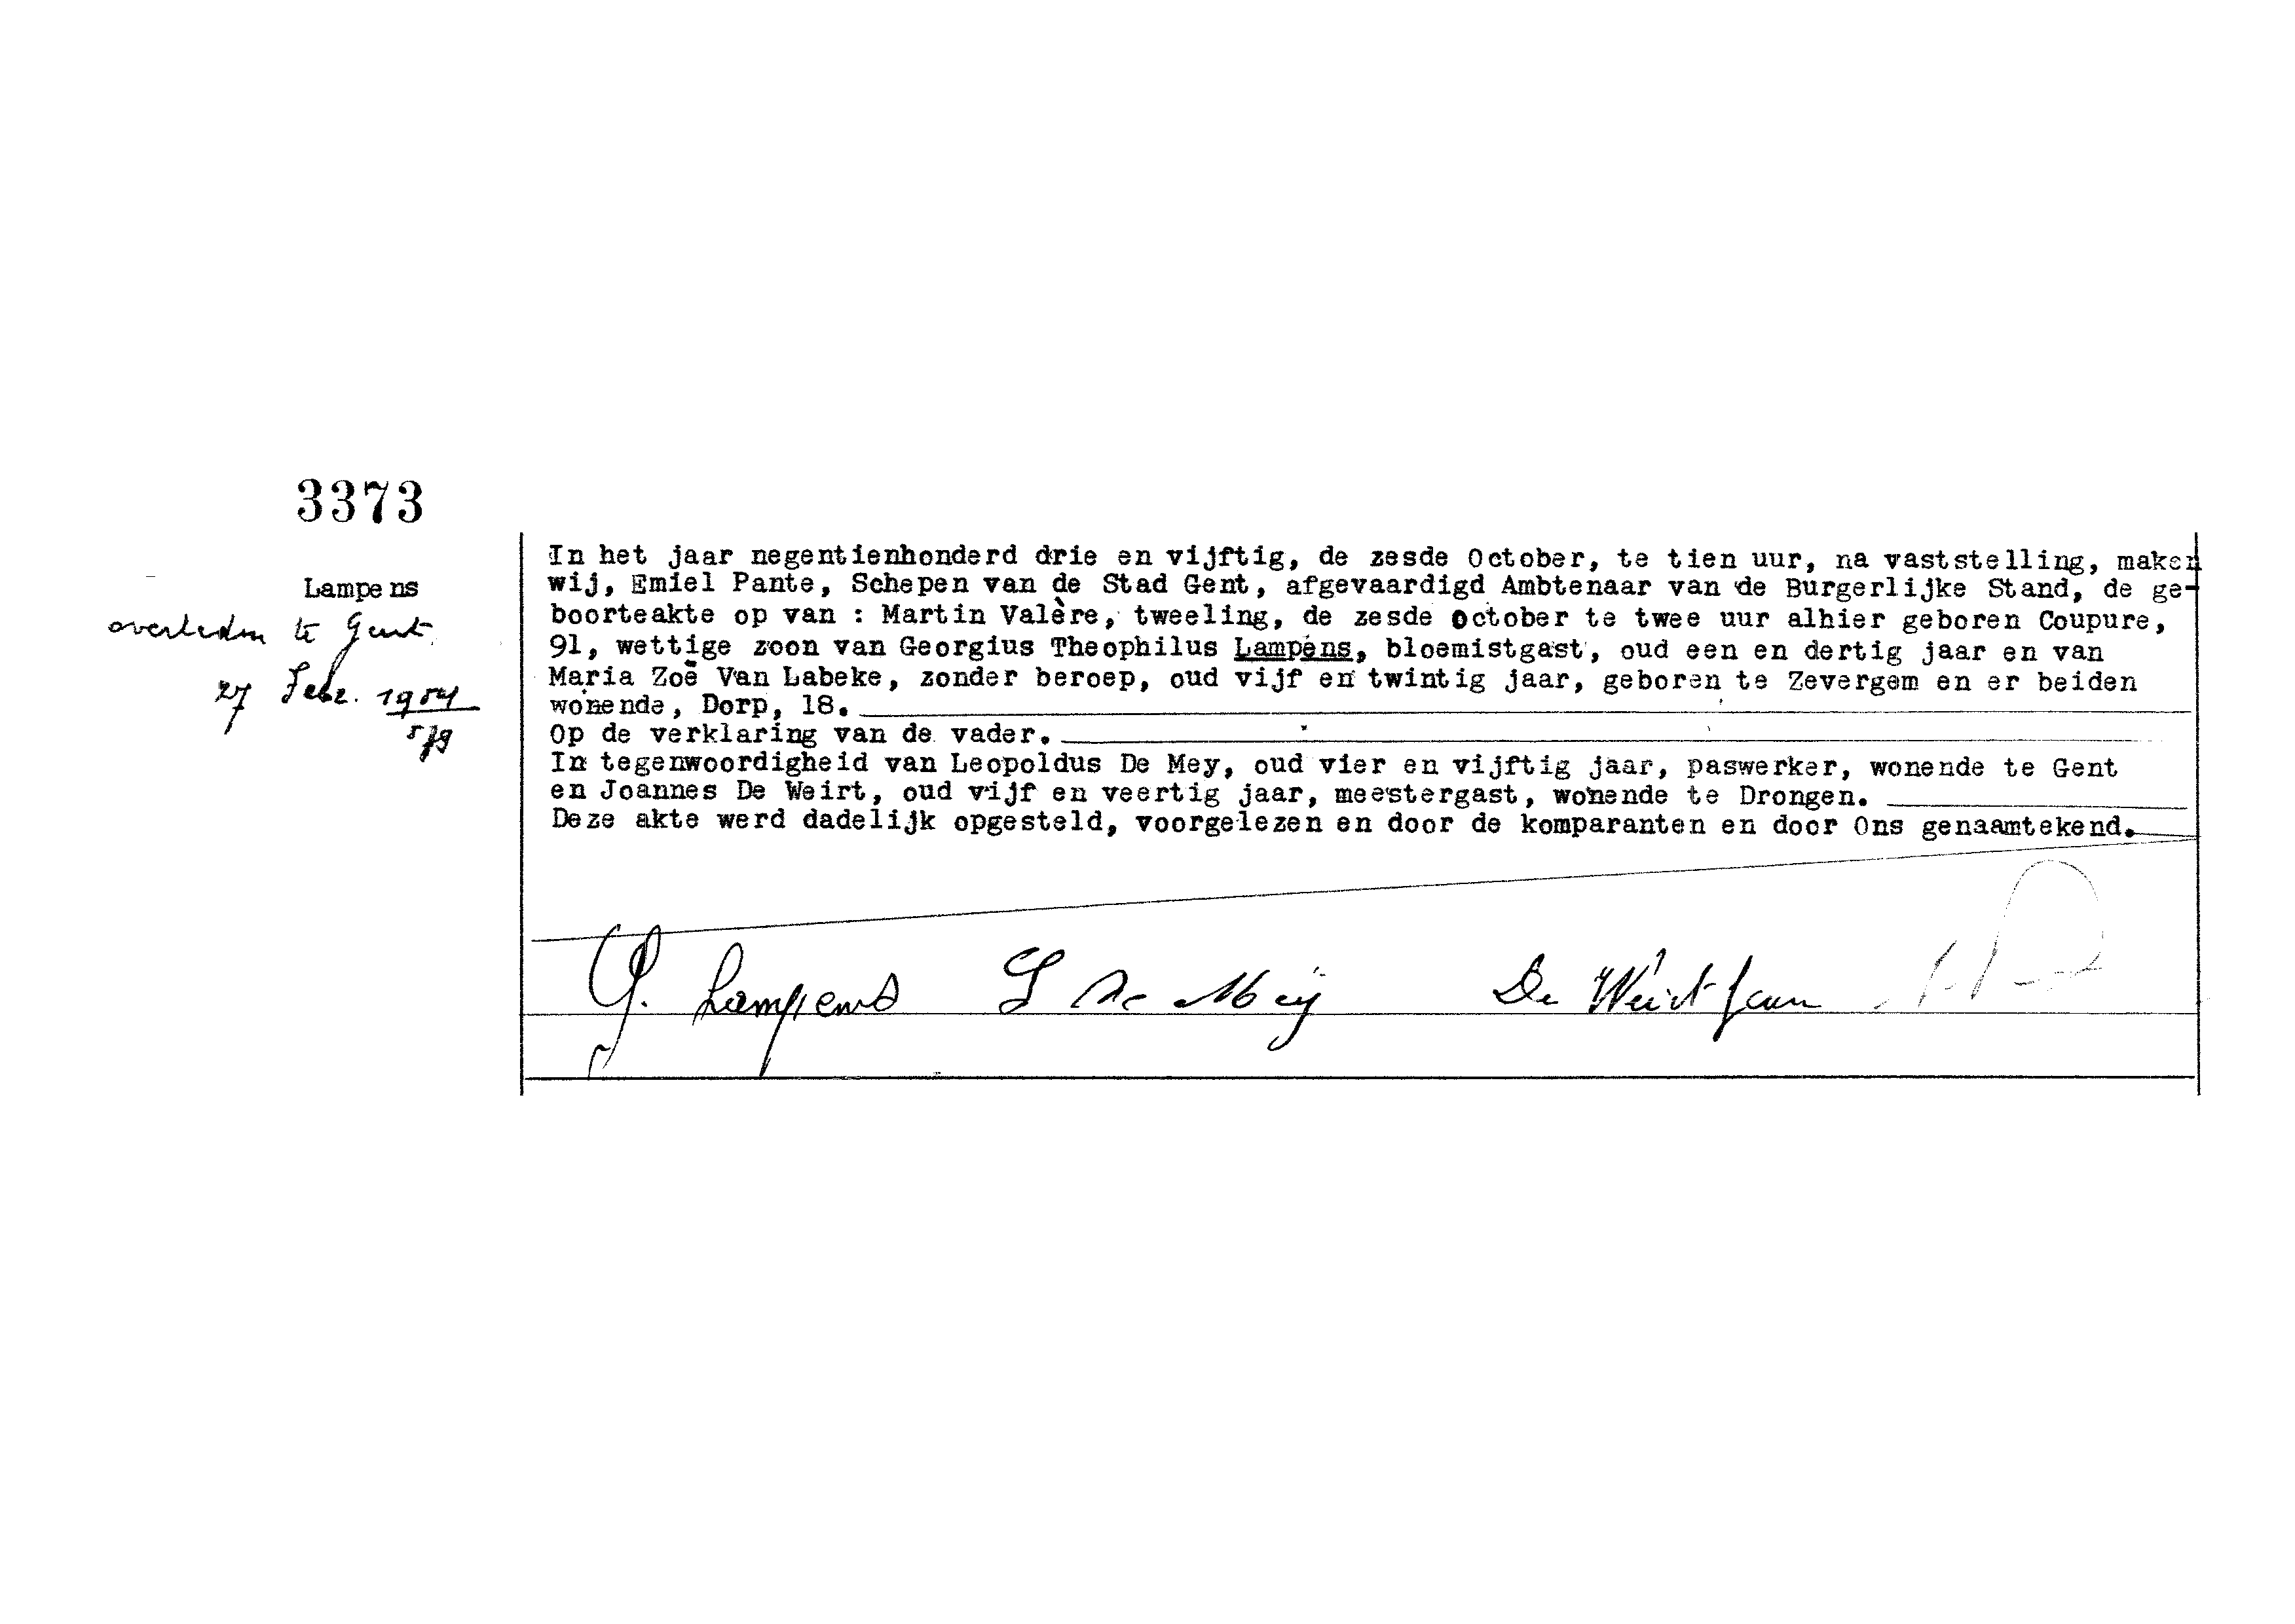 3373
Lampens
overleden te Gent
27 Febr. 1954
579
In het jaar negentienhonderd drie en vijftig, de zesde October, te tien uur, na vaststelling, maken
wij, Emiel Pante, Schepen van de Stad Gent, afgevaardigd Ambtenaar van de Burgerlijke Stand, de ge-
boorteakte op van : Martin Valère, tweeling, de zesde October te twee uur alhier geboren Coupure,
91, wettige zoon van Georgius Theophilus Lampens, bloemistgast, oud een en dertig jaar en van
Maria Zoë Van Labeke, zonder beroep, oud vijf en twintig jaar, geboren te Zevergem en er beiden
wonende, Dorp, 18.
Op de verklaring van de vader.
In tegenwoordigheid van Leopoldus De Mey, oud vier en vijftig jaar, paswerker, wonende te Gent
en Joannes De Weirt, oud vijf en veertig jaar, meestergast, wonende te Drongen.
Deze akte werd dadelijk opgesteld, voorgelezen en door de komparanten en door Ons genaamtekend.
G. Lampens L De Mey De Weirt Jean